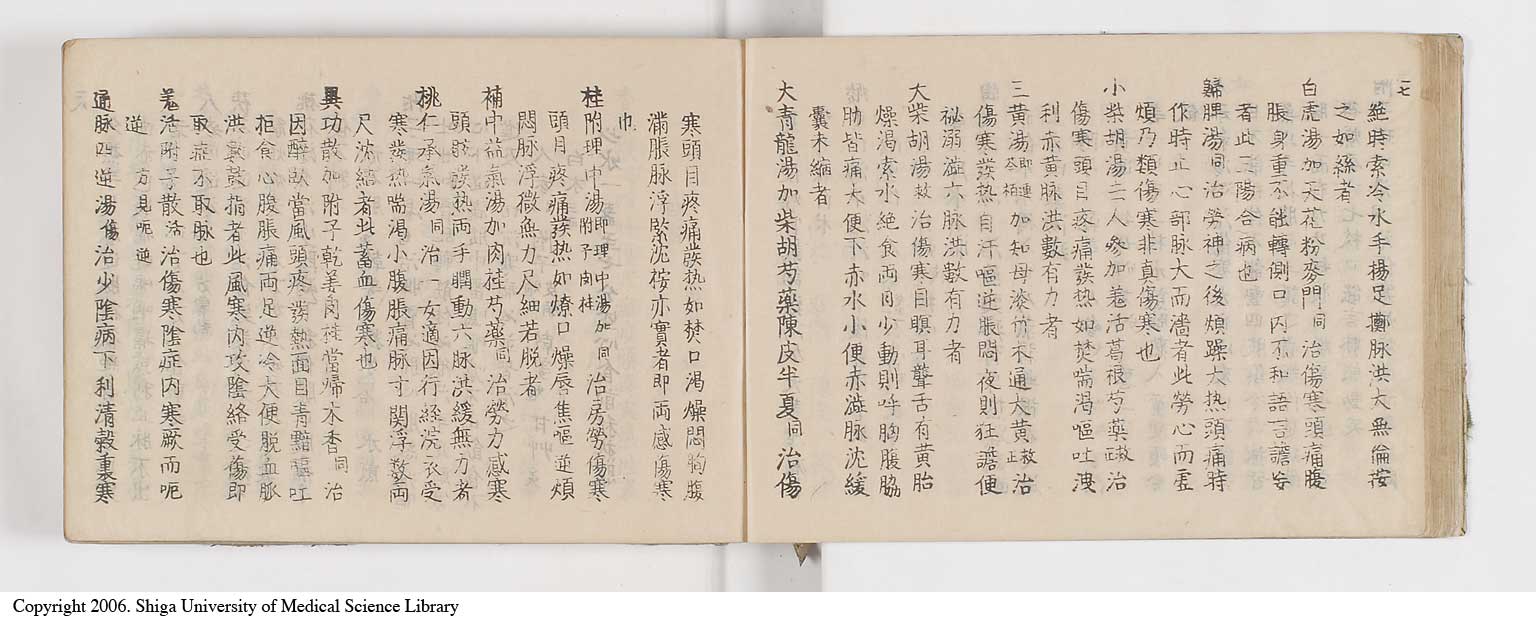 十七
絶時索冷水手揚足擲脉洪大無倫按
之如絲者
白虎湯加天花粉麥門同治傷寒頭痛腹
脹身重不能轉側口内不和語言譫妄
者此三陽合病也
歸脾湯同治勞神之後煩躁大热頭痛時
作時止心部脉大而濇者此勞心而虛
煩乃類傷寒非真傷寒也
小柴胡湯去人參加羗活葛根芍藥正救治
傷寒頭目疼痛發热如焚喘渴嘔吐洩
利赤黄脉洪數有力者
三黄湯即連芩栢加知母大黄正救治
傷寒發热自汗嘔逆脹悶夜則狂譫便
祕溺澁六脉洪數有力者
大柴胡湯救治傷寒目瞑耳聾舌有黄胎
燥渴索水絶食両月少動則呼胸腹脇
肋皆痛大便下赤水小便赤澁脉沈緩
囊未縮者
大青龍湯加柴胡芍藥陳皮半夏同治傷
寒頭目疼痛發热如焚口渴燥悶胸腹
滿脹脉浮緊沈按亦實者即両感傷寒
桂附理中湯即理中湯加附子肉桂同治房勞傷寒
頭目疼痛發热如燎口燥唇焦嘔逆煩
悶脉浮微無力尺細若脱者
補中益氣湯加肉桂芍藥同治勞力感寒
頭眩發热両手瞤動六脉洪緩無力者
桃仁承氣湯同治一女適因行經浣衣受
寒發热喘渴小腹脹痛脉寸関浮数両
尺沈結者此蓄血傷寒也
異功散加附子乾姜肉桂當帰木香同治
因醉臥當風頭疼發熱面目青黯嘔吐
拒食心腹脹痛両足逆冷大便脱血脉
洪數鼓指者此風寒内攻陰絡受傷即
取症不取脉也
羗活附子散活治傷寒陰症内寒厥而呃
逆方見呃逆
通脉四逆湯傷治少陰病下利清穀裏寒